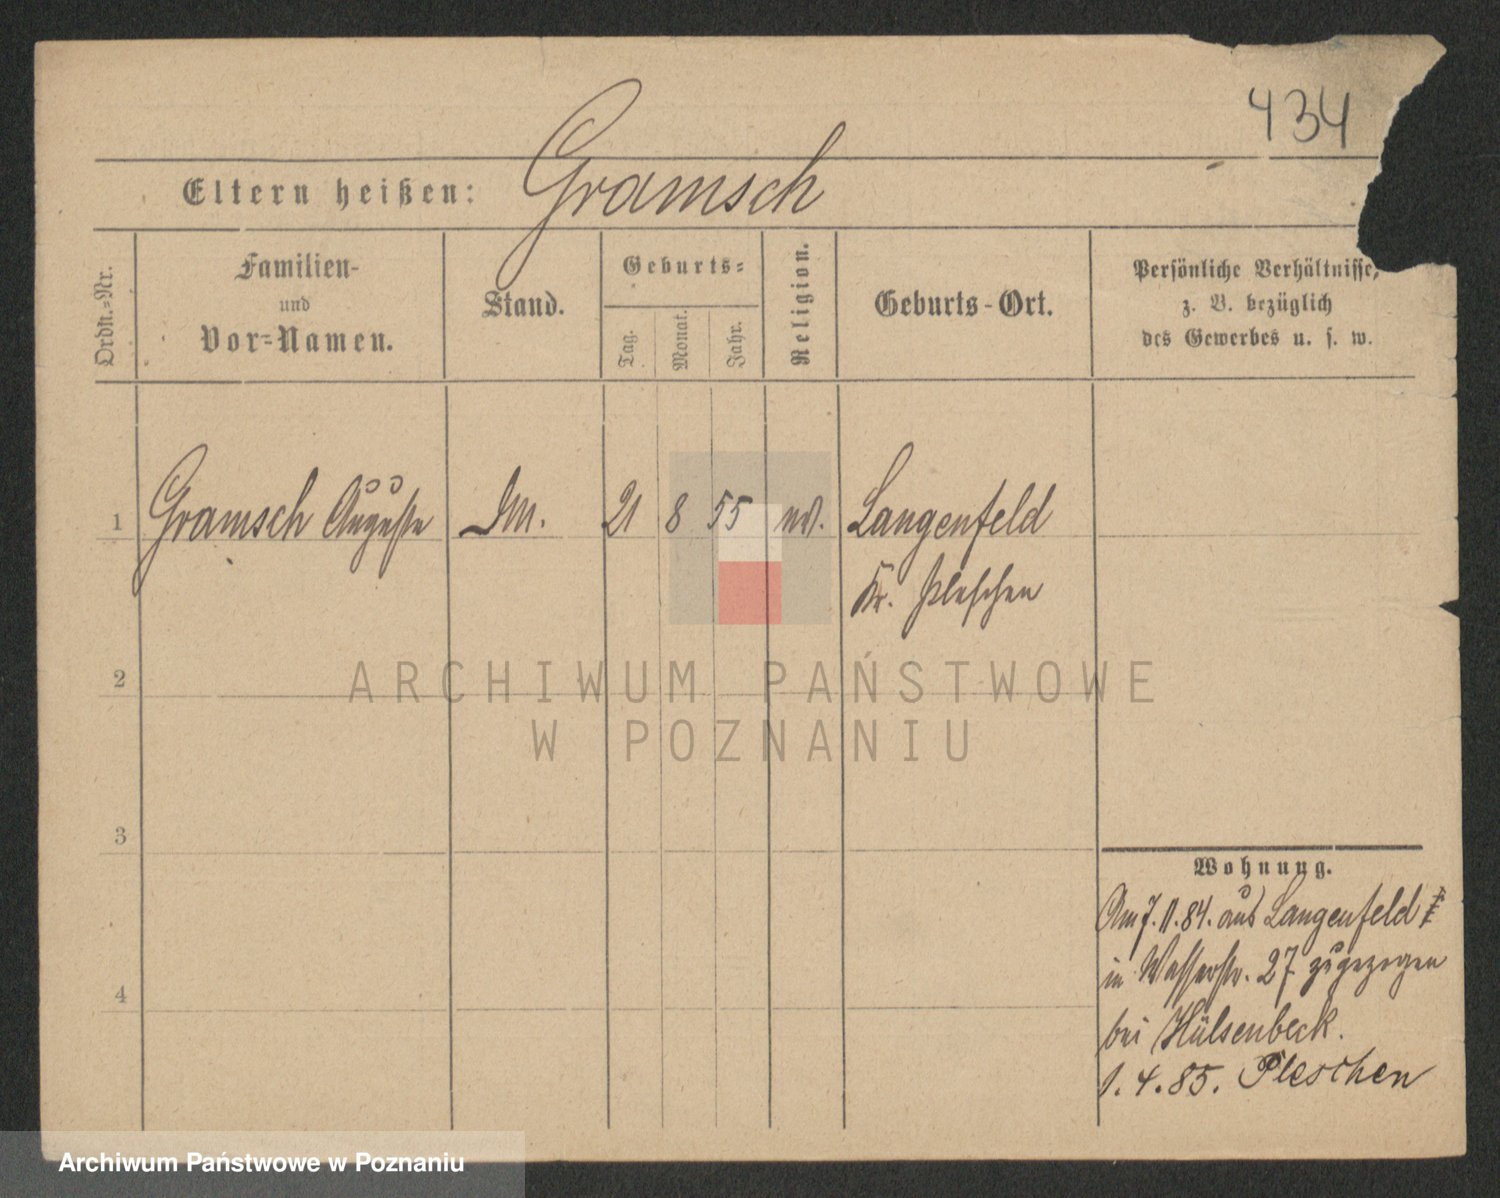 434
Eltern heißen: Gramsch
Ordn.-Nr.
Familien-
und
Vor-Namen.
Stand.
Geburts-
Tag.
Monat.
Jahr.
Religion.
Geburts-Ort.
Persönliche Verhältnisse,
z. B. bezüglich
des Gewerbes u. s. w.
1 Gramsch Auguste DM. 21 8 55 ev. Langenfeld
Kr. Pleschen
2
3
4
ARCHIWUM PAŃSTWOWE
W POZNANIU
Wohnung.
Am 7.11.84. aus Langenfeld
in Wasserstr. 27 zugezogen
bei Hülsenbeck.
1.4.85. Pleschen
Archiwum Państwowe w Poznaniu